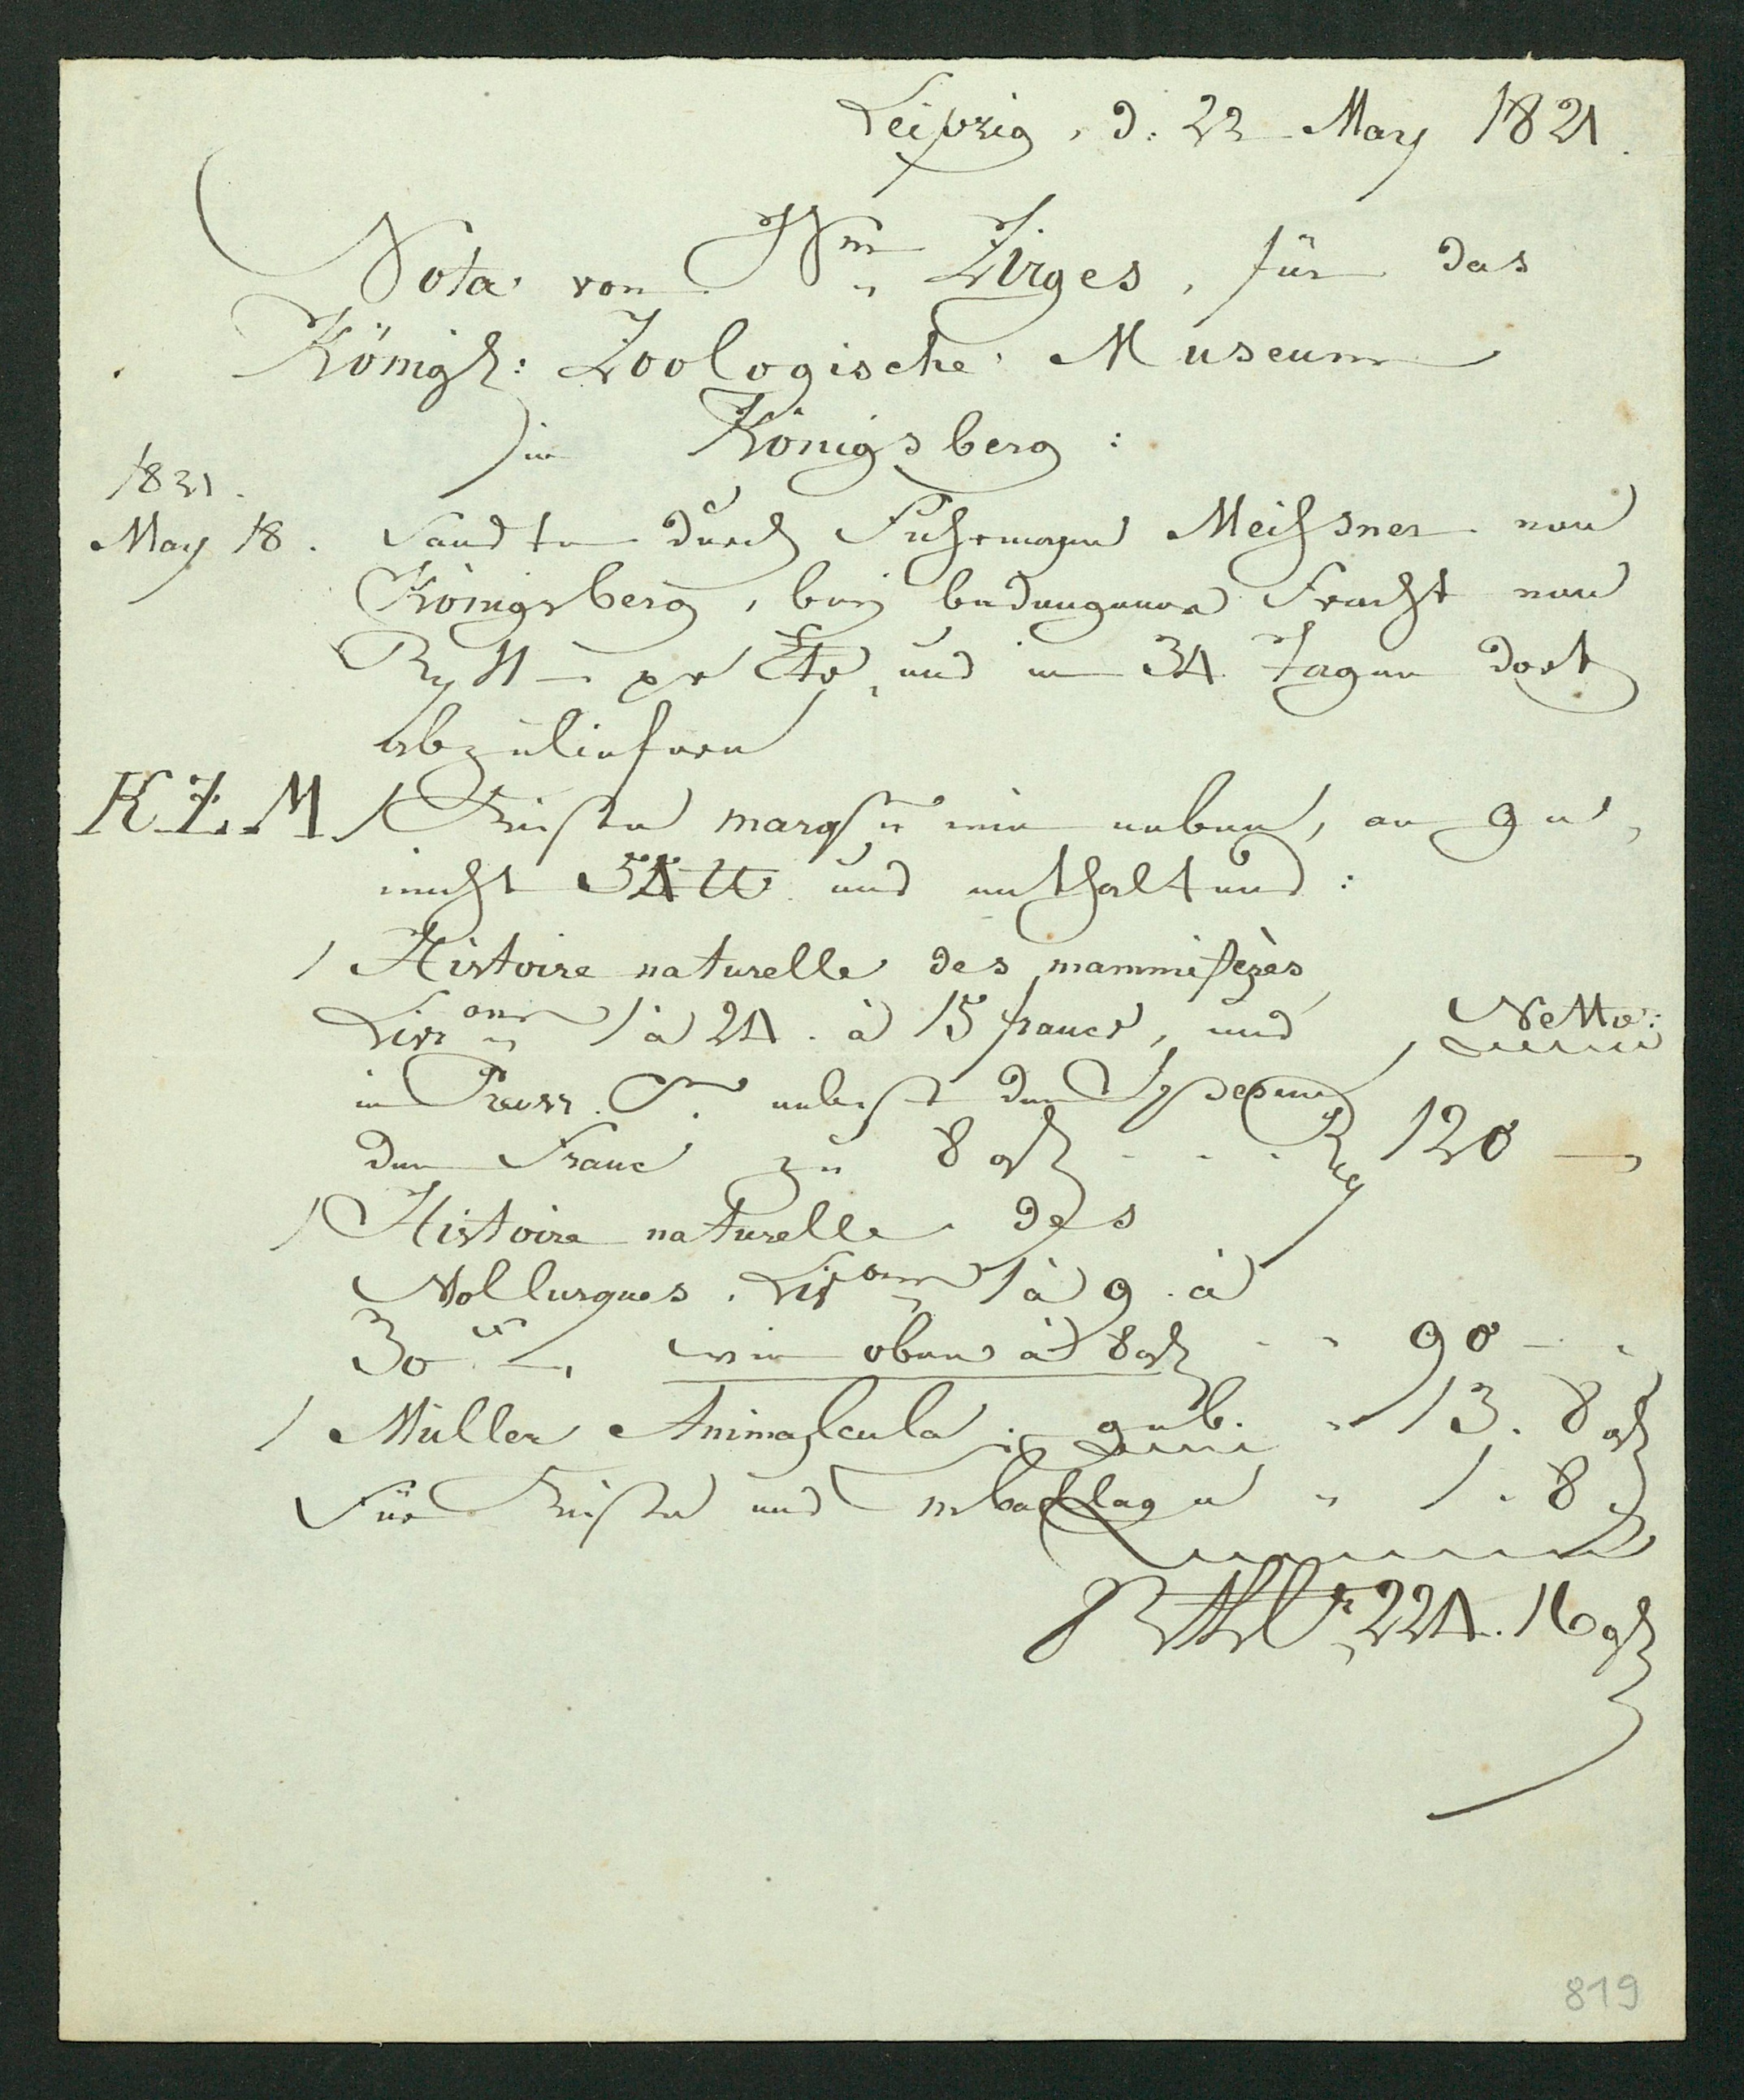 Leipzig, d: 22 May 1821.
Nota von Wm Zirges, für das
Königl: Zoologische Museum
in Königsberg:
1821.
May 18. Sandte durch Fuhrmann Meißner von
Königsberg, bey bedungener Fracht von
4 pr Ctr, und in 34 Tagen dort
abzuliefern
K.Z.M. 1 Kiste marqu wie neben, an Ge-
wicht 54 ℔ und enthaltend:
1 Histoire naturelle des mammifères
Livr ons 1 à 24. à 15 francs, und Netto:
in Preuss. nebst den
den Franc zu 8 gl - - - 120 —
1 Histoire naturelle des
Mollusques. Livr ons 1 à 9. à
30 wie oben à 8 gl - - 90 —
1 Müller Animalcula. geb. - 13. 8 gl
Für Kiste und Emballage " 1. 8
Rthlr 224. 16 gl
819